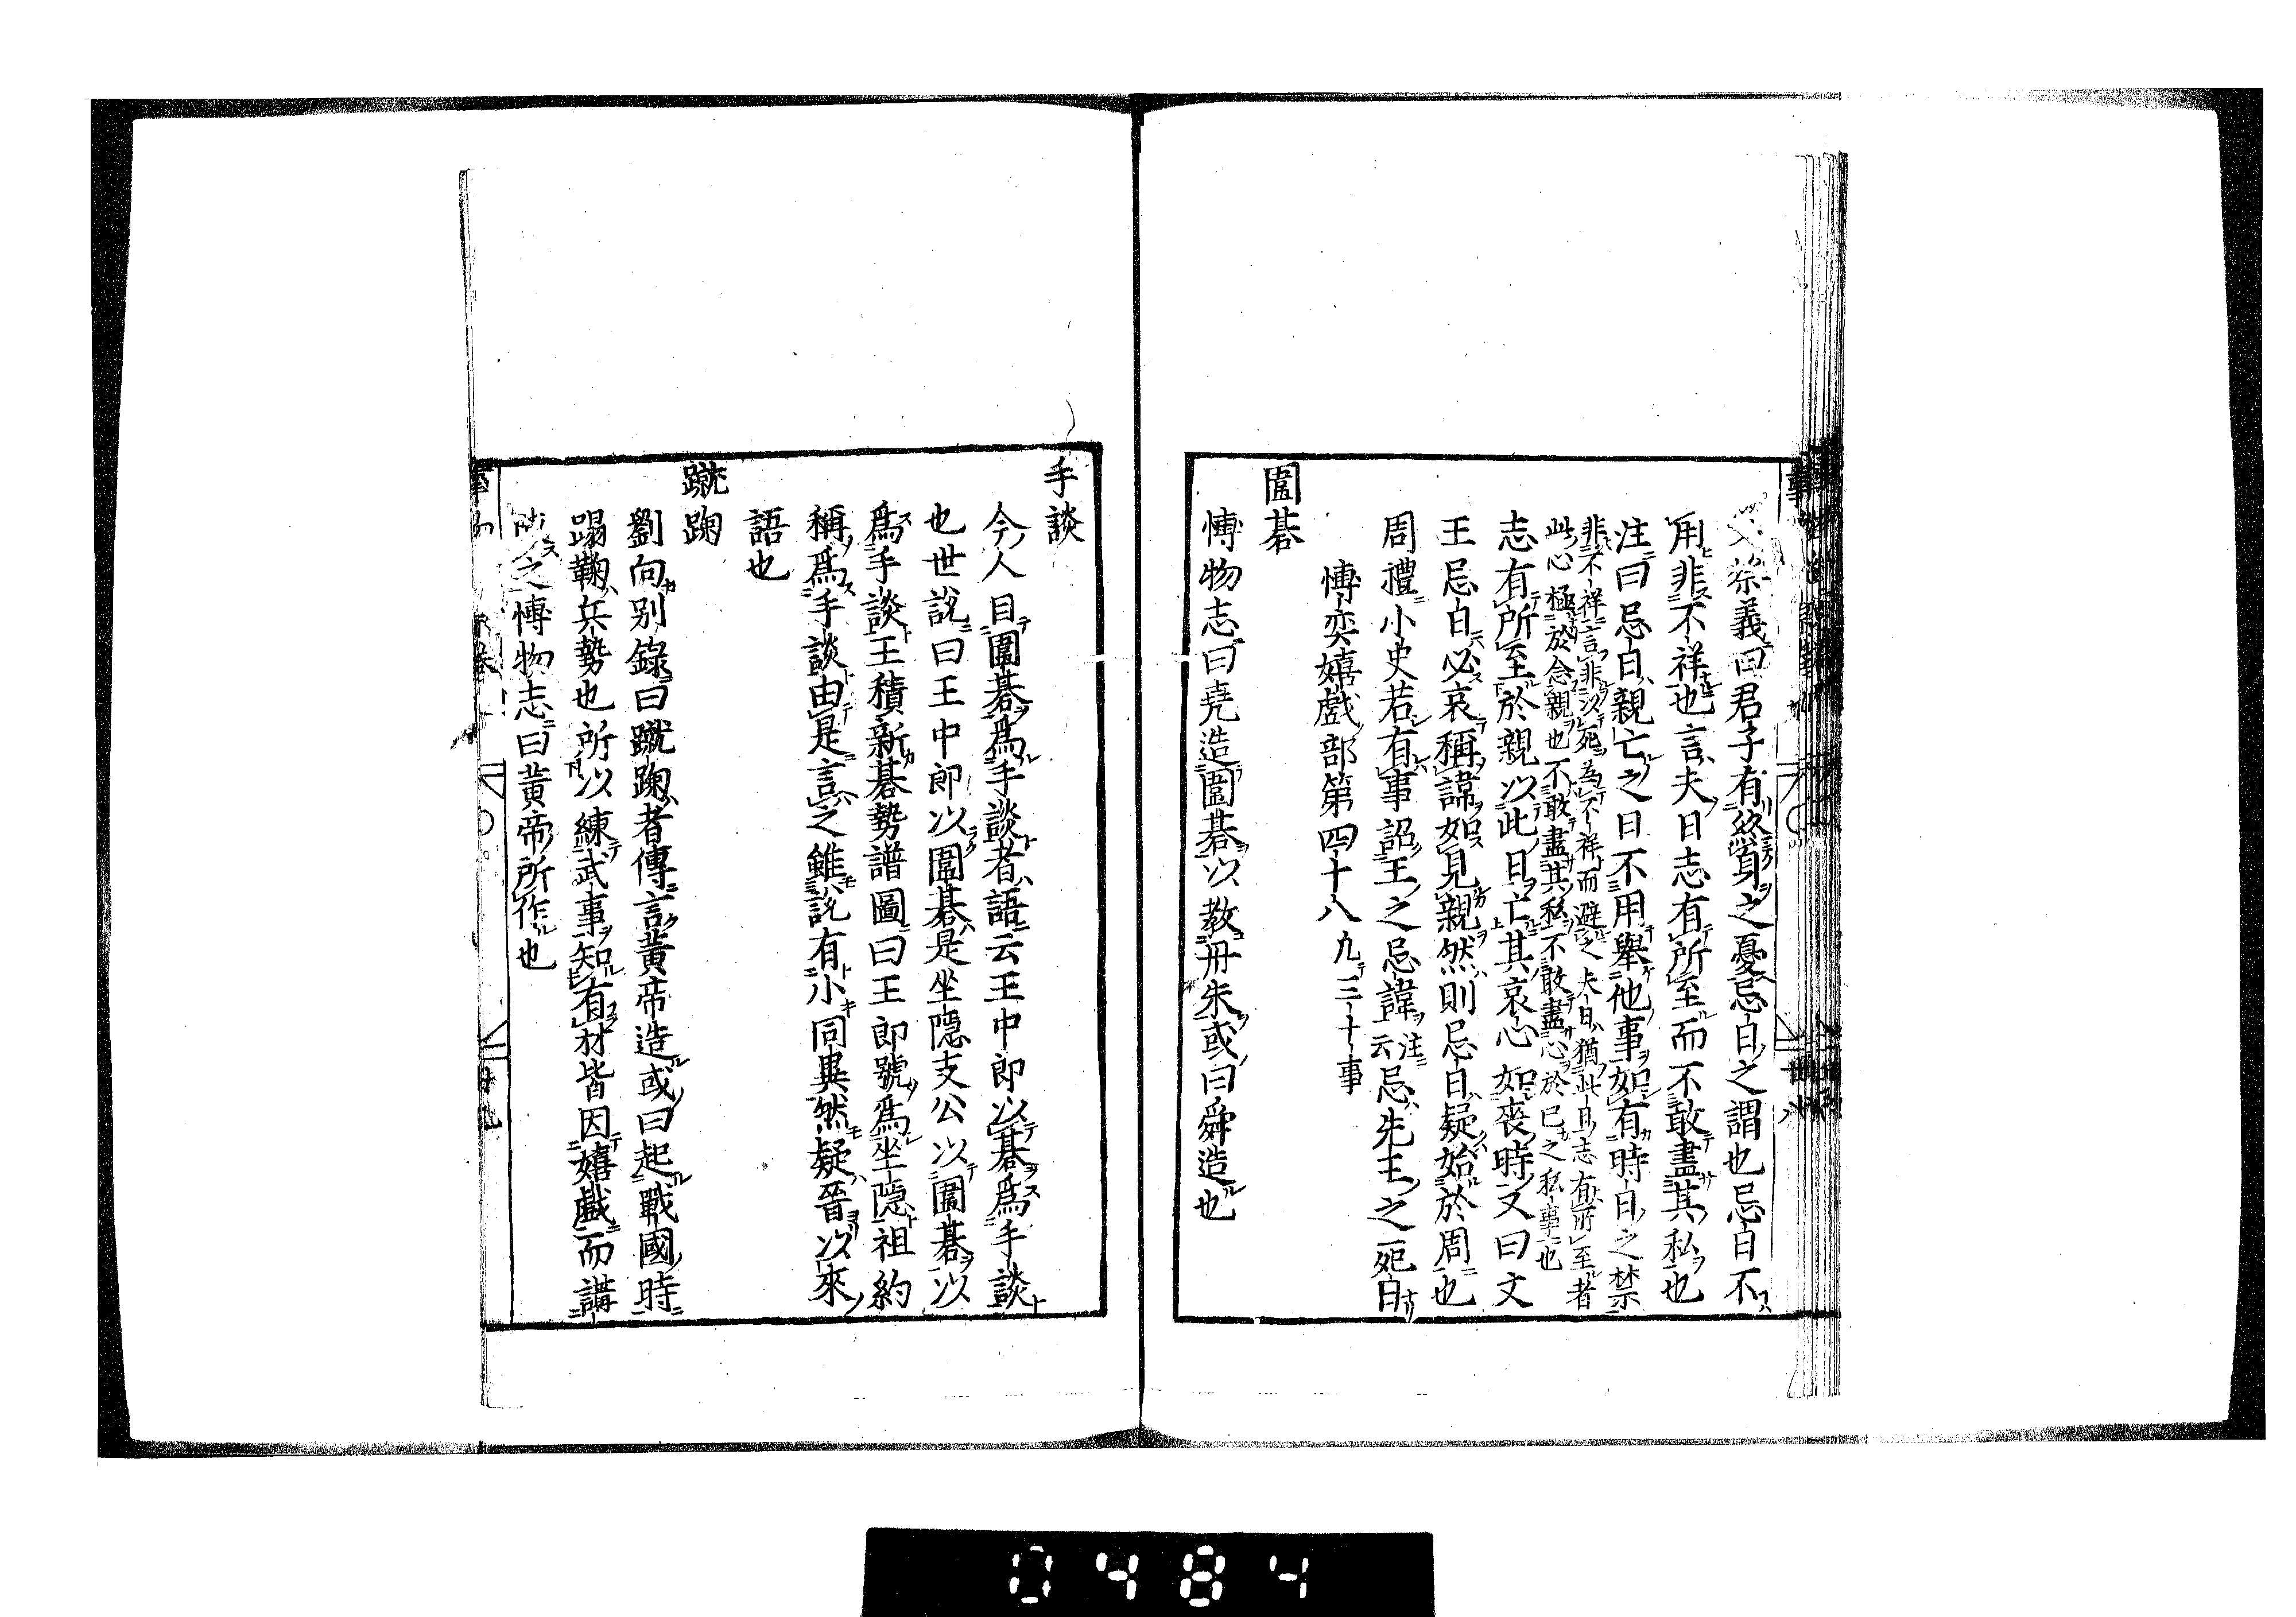 祭義曰君子有終身之憂忌日之謂也忌日不
用非不祥也言夫日志有所至而不敢盡其私也
注曰忌日親亡之日不用舉他事如有時日之禁
非不祥言非以死為不祥而避之夫日猶此日志有所至者
此心極於念親也不敢盡其私不敢盡心於已之私事也
志有所至於親以此日亡其哀心如喪時又曰文
王忌日必哀稱諱如見親然則忌日疑始於周也
周禮小史若有事詔王之忌諱注云忌先王之死日
博奕嬉戲部第四十八 凡三十事
圍碁
博物志曰堯造圍碁以教丹朱或曰舜造也
手談
今人目圍碁為手談者語云王中郎以碁為手談
也世說曰王中郎以圍碁是坐隱支公以圍碁以
為手談王積新碁勢譜圖曰王郎號為坐隱祖約
稱為手談由是言之雖說有小同異然疑晉以來
語也
蹴踘
劉向別錄曰蹴踘者傳言黃帝造或曰起戰國時
蹋鞠兵勢也所以練武事知有材皆因嬉戲而講
之博物志曰黃帝所作也
0484